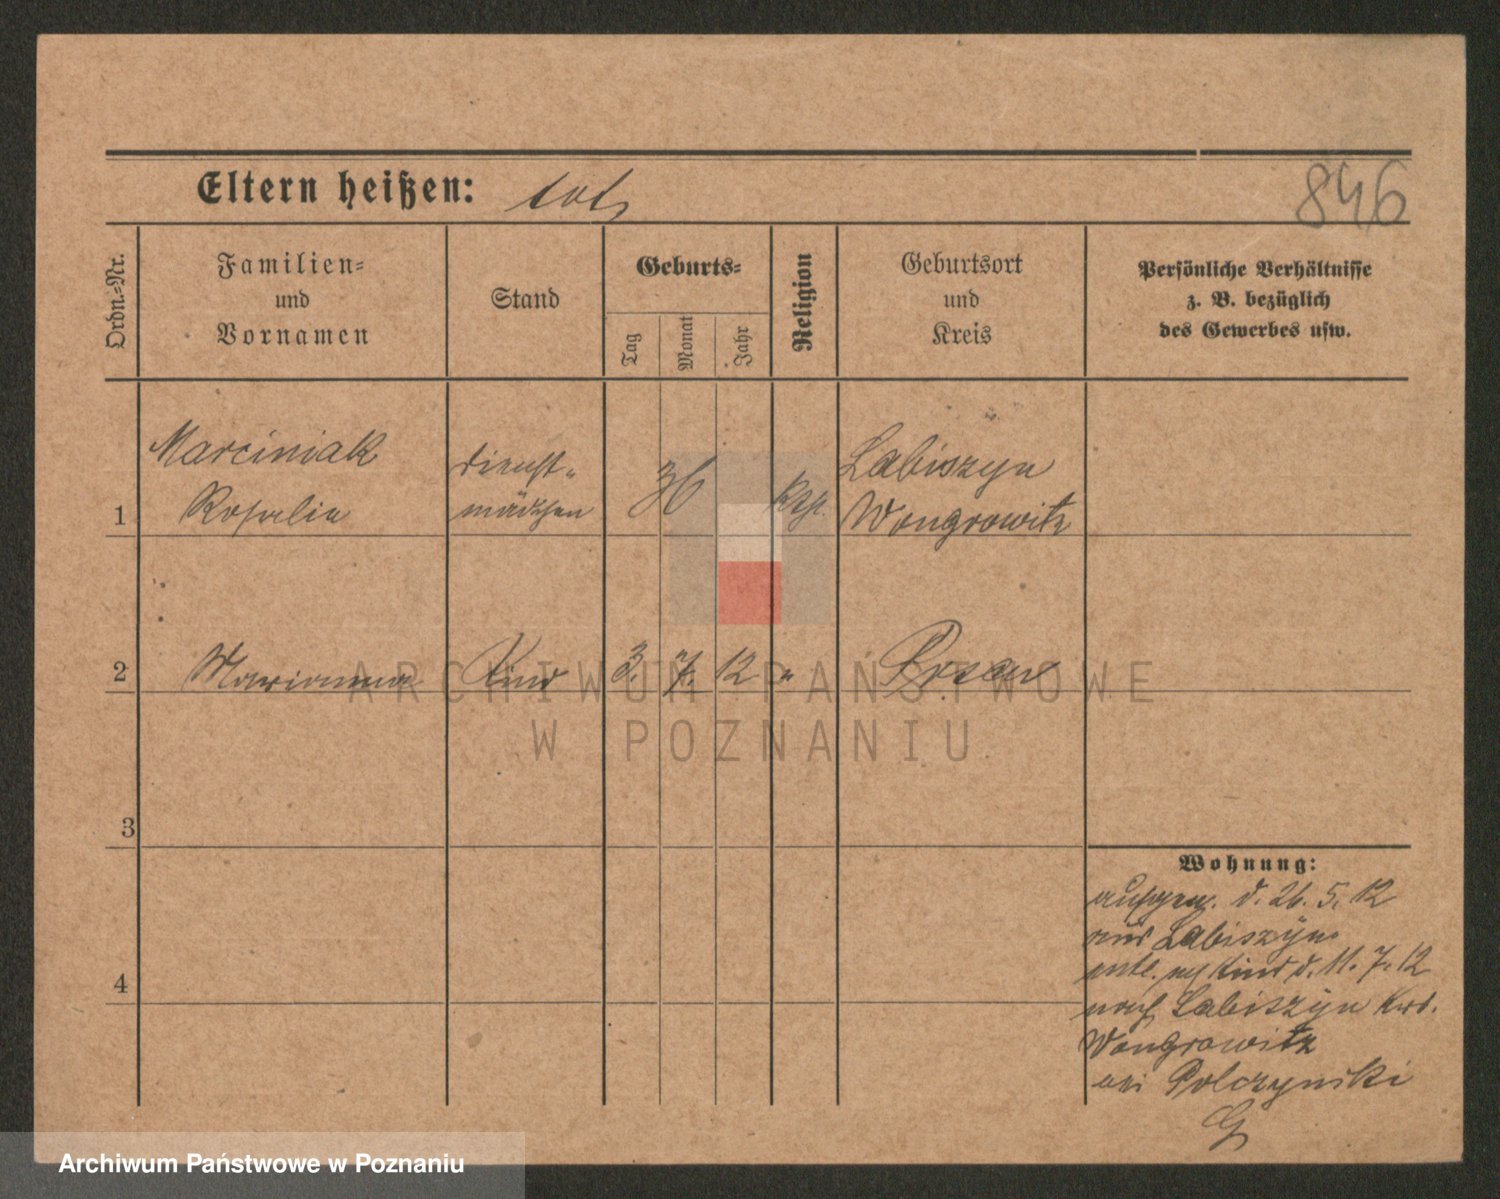 846
Eltern heißen: tot,
Ordn.-Nr.
Familien-
und
Vornamen
Stand
Geburts-
Tag
Monat
Jahr
Religion
Geburtsort
und
Kreis
Persönliche Verhältnisse
z. B. bezüglich
des Gewerbes usw.
Marciniak
Rosalie
1
Dienst-
mädchen
kath.
Labiszyn
Wongrowitz
2
Marianna
Kind
3. 7. 12
"
Posen
3
4
Wohnung:
aufgen. d. 26. 5. 12
aus Labiszyn
entl. Kind d. 11. 7. 12
nach Labiszyn Krs.
Wongrowitz
bei Polczynski
ARCHIWUM PAŃSTWOWE
W POZNANIU
Archiwum Państwowe w Poznaniu